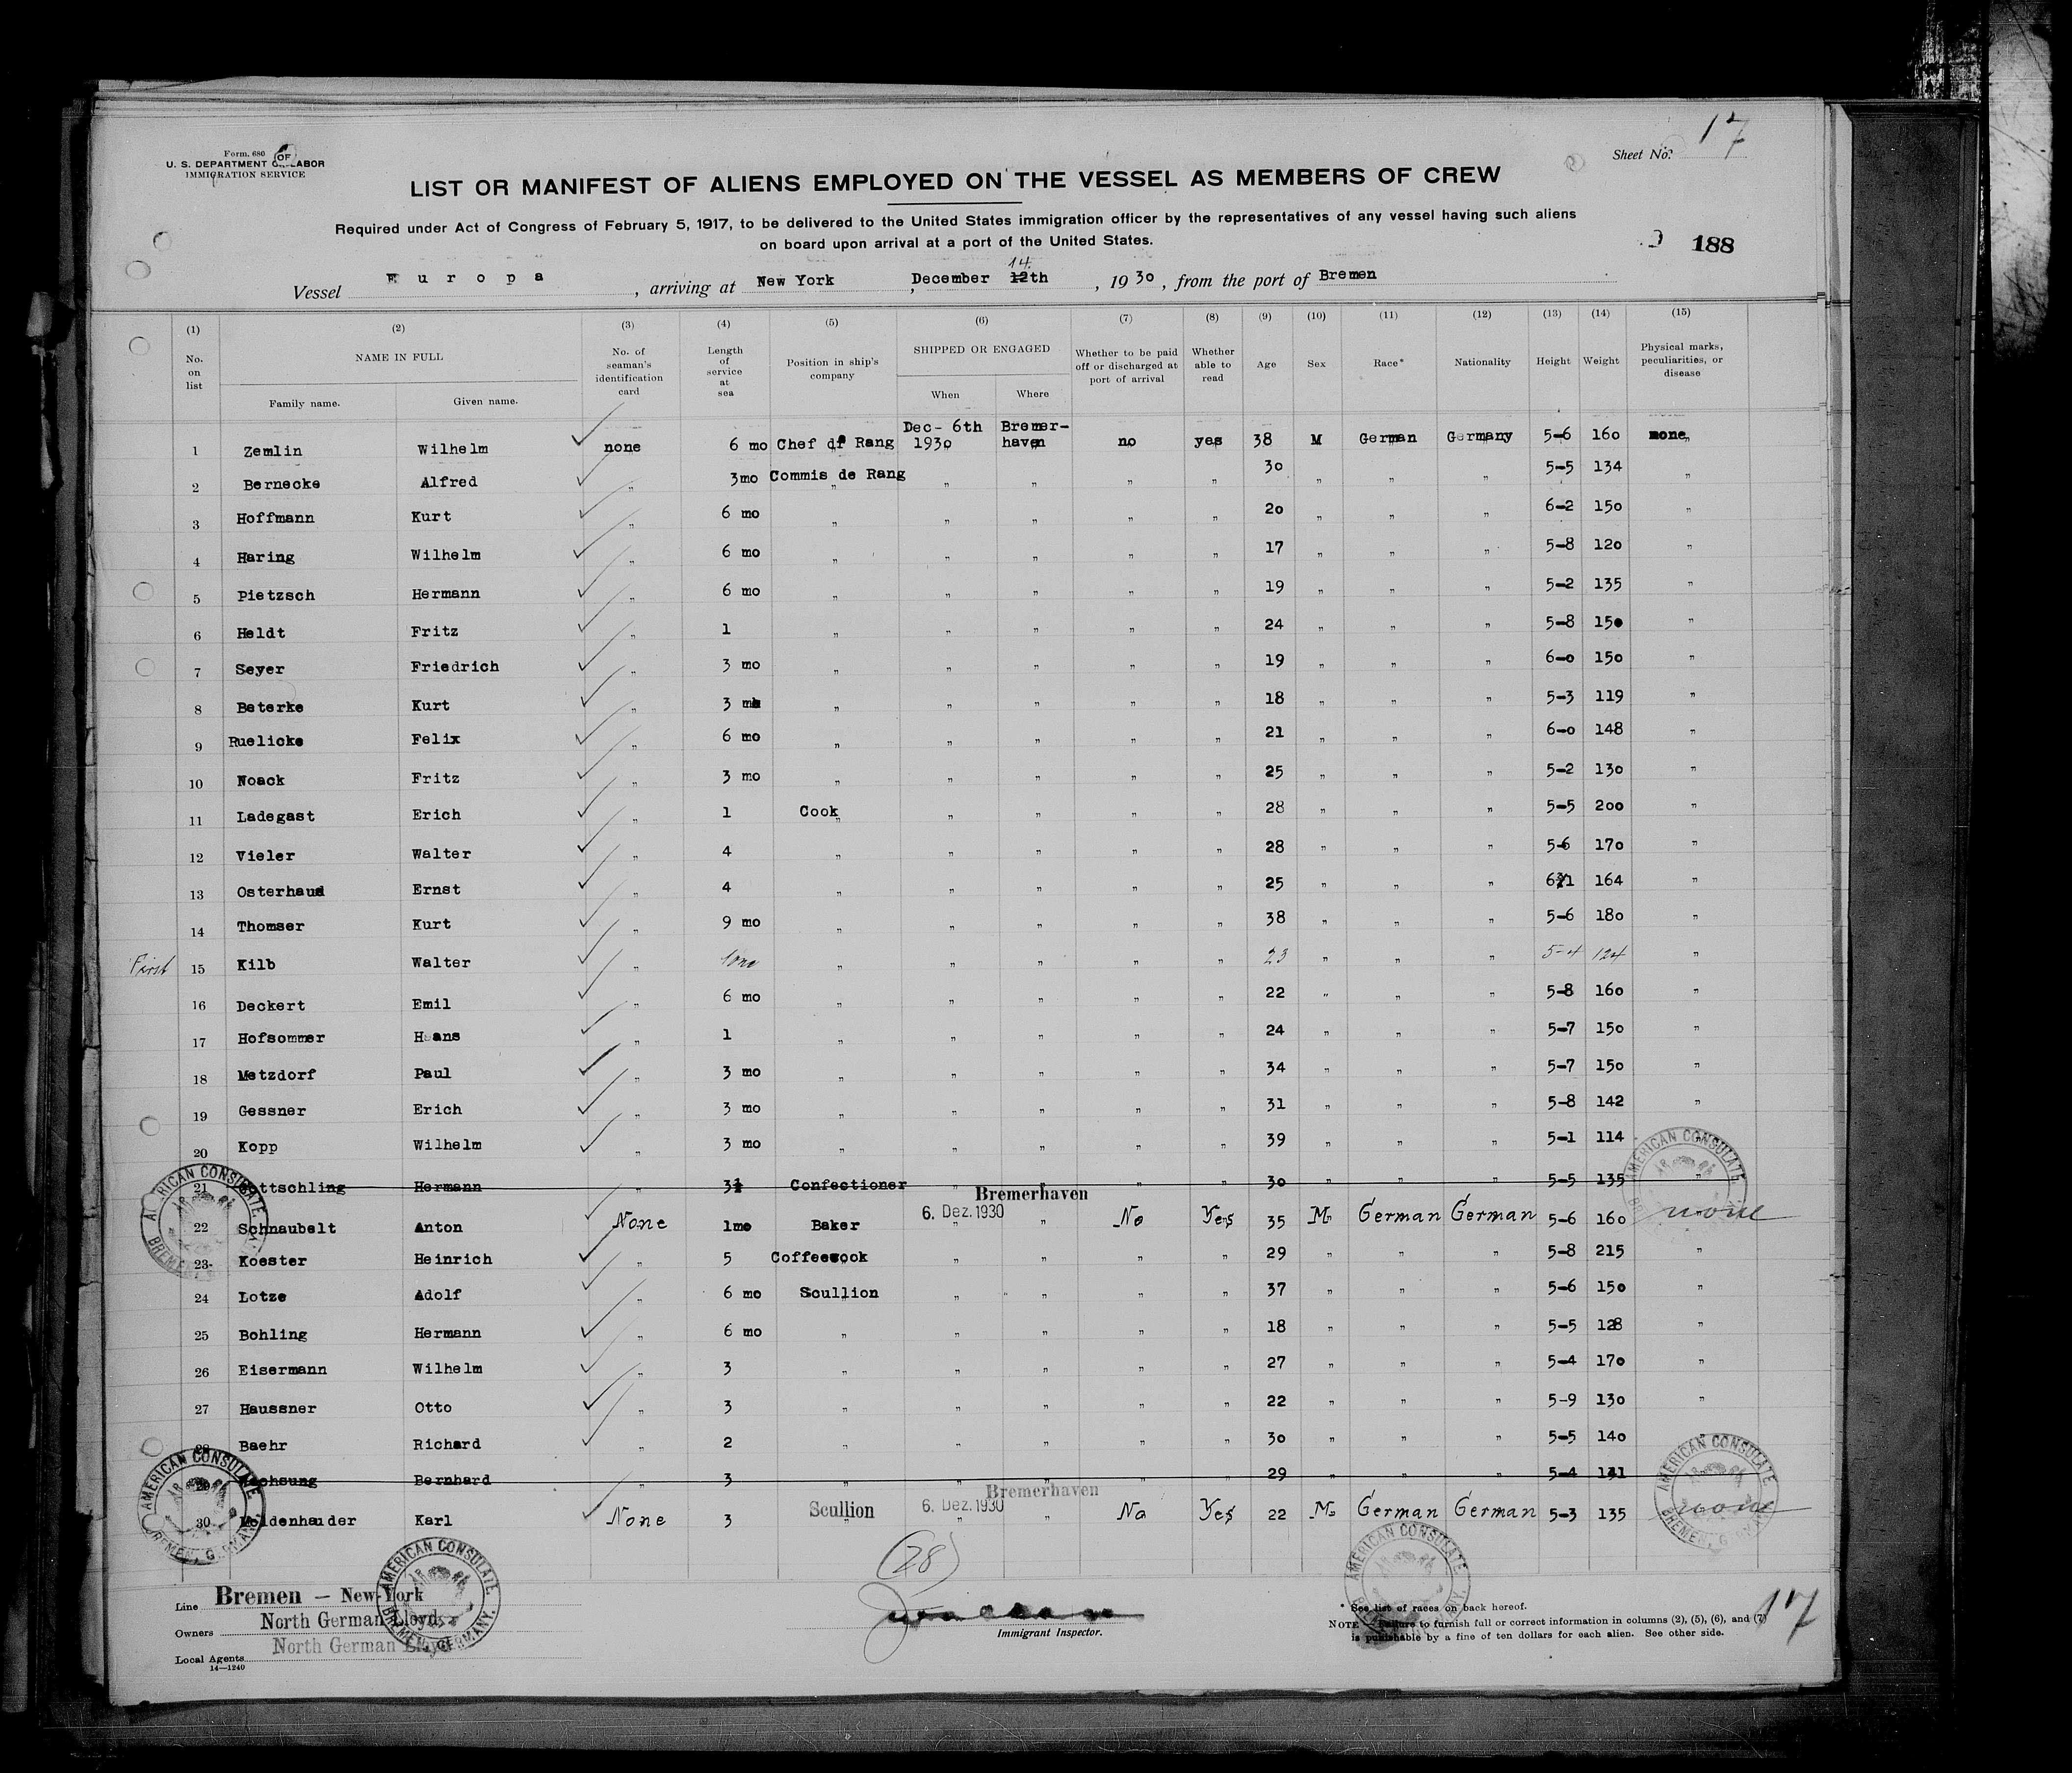 Form. 680
U. S. DEPARTMENT OF LABOR
IMMIGRATION SERVICE
Sheet No. 17
LIST OR MANIFEST OF ALIENS EMPLOYED ON THE VESSEL AS MEMBERS OF CREW
Required under Act of Congress of February 5, 1917, to be delivered to the United States immigration officer by the representatives of any vessel having such aliens
on board upon arrival at a port of the United States.
188
14
Vessel Europa, arriving at New York, December 12th, 1930, from the port of Bremen
(1) (2) (3) (4) (5) (6) (7) (8) (9) (10) (11) (12) (13) (14) (15)
No. on list NAME IN FULL Family name. Given name. No. of seaman's identification card Length of service at sea Position in ship's company SHIPPED OR ENGAGED When Where Whether to be paid off or discharged at port of arrival Whether able to read Age Sex Race* Nationality Height Weight Physical marks, peculiarities, or disease
1 Zemlin Wilhelm none 6 mo Chef de Rang Dec- 6th 1930 Bremer-haven no yes 38 M German Germany 5-6 160 none
2 Bernecke Alfred " 3mo Commis de Rang " " " " 30 " " " 5-5 134 "
3 Hoffmann Kurt " 6 mo " " " " " 20 " " " 6-2 150 "
4 Haring Wilhelm " 6 mo " " " " " 17 " " " 5-8 120 "
5 Pietzsch Hermann " 6 mo " " " " " 19 " " " 5-2 135 "
6 Heldt Fritz " 1 " " " " " 24 " " " 5-8 150 "
7 Seyer Friedrich " 3 mo " " " " " 19 " " " 6-0 150 "
8 Beterke Kurt " 3 mo " " " " " 18 " " " 5-3 119 "
9 Ruelicke Felix " 6 mo " " " " " 21 " " " 6-0 148 "
10 Noack Fritz " 3 mo " " " " " 25 " " " 5-2 130 "
11 Ladegast Erich " 1 Cook " " " " 28 " " " 5-5 200 "
12 Vieler Walter " 4 " " " " " 28 " " " 5-6 170 "
13 Osterhaus Ernst " 4 " " " " " 25 " " " 164 "
14 Thomser Kurt " 9 mo " " " " " 38 " " " 5-6 180 "
First 15 Kilb Walter " " " " " " 23 " " " 5-4 124 "
16 Deckert Emil " 6 mo " " " " " 22 " " " 5-8 160 "
17 Hofsommer Hans " 1 " " " " " 24 " " " 5-7 150 "
18 Metzdorf Paul " 3 mo " " " " " 34 " " " 5-7 150 "
19 Gessner Erich " 3 mo " " " " " 31 " " " 5-8 142 "
20 Kopp Wilhelm " 3 mo " " " " " 39 " " " 5-1 114 "
21 Gottschling Hermann " 3½ Confectioner " " " " 30 " " " 5-5 135 "
22 Schnaubelt Anton None 1mo Baker 6. Dez. 1930 Bremerhaven No Yes 35 M German German 5-6 160 none
23 Koester Heinrich " 5 Coffeecook " " " " 29 " " " 5-8 215 "
24 Lotze Adolf " 6 mo Scullion " " " " 37 " " " 5-6 150 "
25 Bohling Hermann " 6 mo " " " " " 18 " " " 5-5 128 "
26 Eisermann Wilhelm " 3 " " " " " 27 " " " 5-4 170 "
27 Haussner Otto " 3 " " " " " 22 " " " 5-9 130 "
28 Baehr Richard " 2 " " " " " 30 " " " 5-5 140 "
29 Bernhard " 3 " " " " " 29 " " " 5-4 131 "
30 Moldenhauder Karl None 3 Scullion 6. Dez. 1930 Bremerhaven No Yes 22 M German German 5-3 135 none
AMERICAN CONSULATE BREMEN, GERMANY.
AMERICAN CONSULATE
AMERICAN CONSULATE BREMEN, GERMANY
AMERICAN CONSULATE BREMEN, GERMANY
AMERICAN CONSULATE BREMEN, GERMANY.
AMERICAN CONSULATE
(28)
Line Bremen — New-York
Owners North German Lloyd
Local Agents North German Lloyd
14—1240
Immigrant Inspector.
* See list of races on back hereof.
NOTE.—Failure to furnish full or correct information in columns (2), (5), (6), and (7)
is punishable by a fine of ten dollars for each alien. See other side.
17